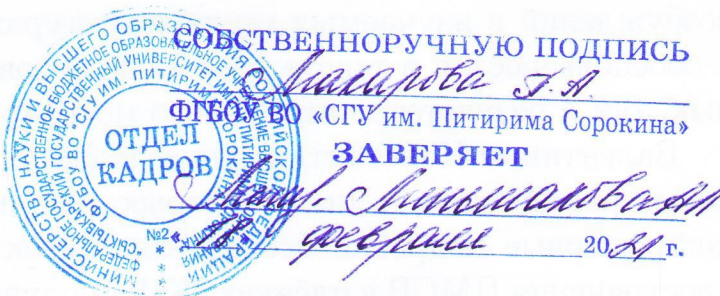 СОБСТВЕННОРУЧНУЮ ПОДПИСЬ
Макарова Г.А.
ФГБОУ ВО «СГУ им. Питирима Сорокина»
ЗАВЕРЯЕТ
февраля 2021 г.
МИНИСТЕРСТВО НАУКИ И ВЫСШЕГО ОБРАЗОВАНИЯ РОССИЙСКОЙ ФЕДЕРАЦИИ
ФЕДЕРАЛЬНОЕ ГОСУДАРСТВЕННОЕ БЮДЖЕТНОЕ ОБРАЗОВАТЕЛЬНОЕ УЧРЕЖДЕНИЕ ВЫСШЕГО ОБРАЗОВАНИЯ
"СЫКТЫВКАРСКИЙ ГОСУДАРСТВЕННЫЙ УНИВЕРСИТЕТ ИМЕНИ ПИТИРИМА СОРОКИНА"
(ФГБОУ ВО "СГУ ИМ. ПИТИРИМА СОРОКИНА")
ОТДЕЛ
КАДРОВ
№2